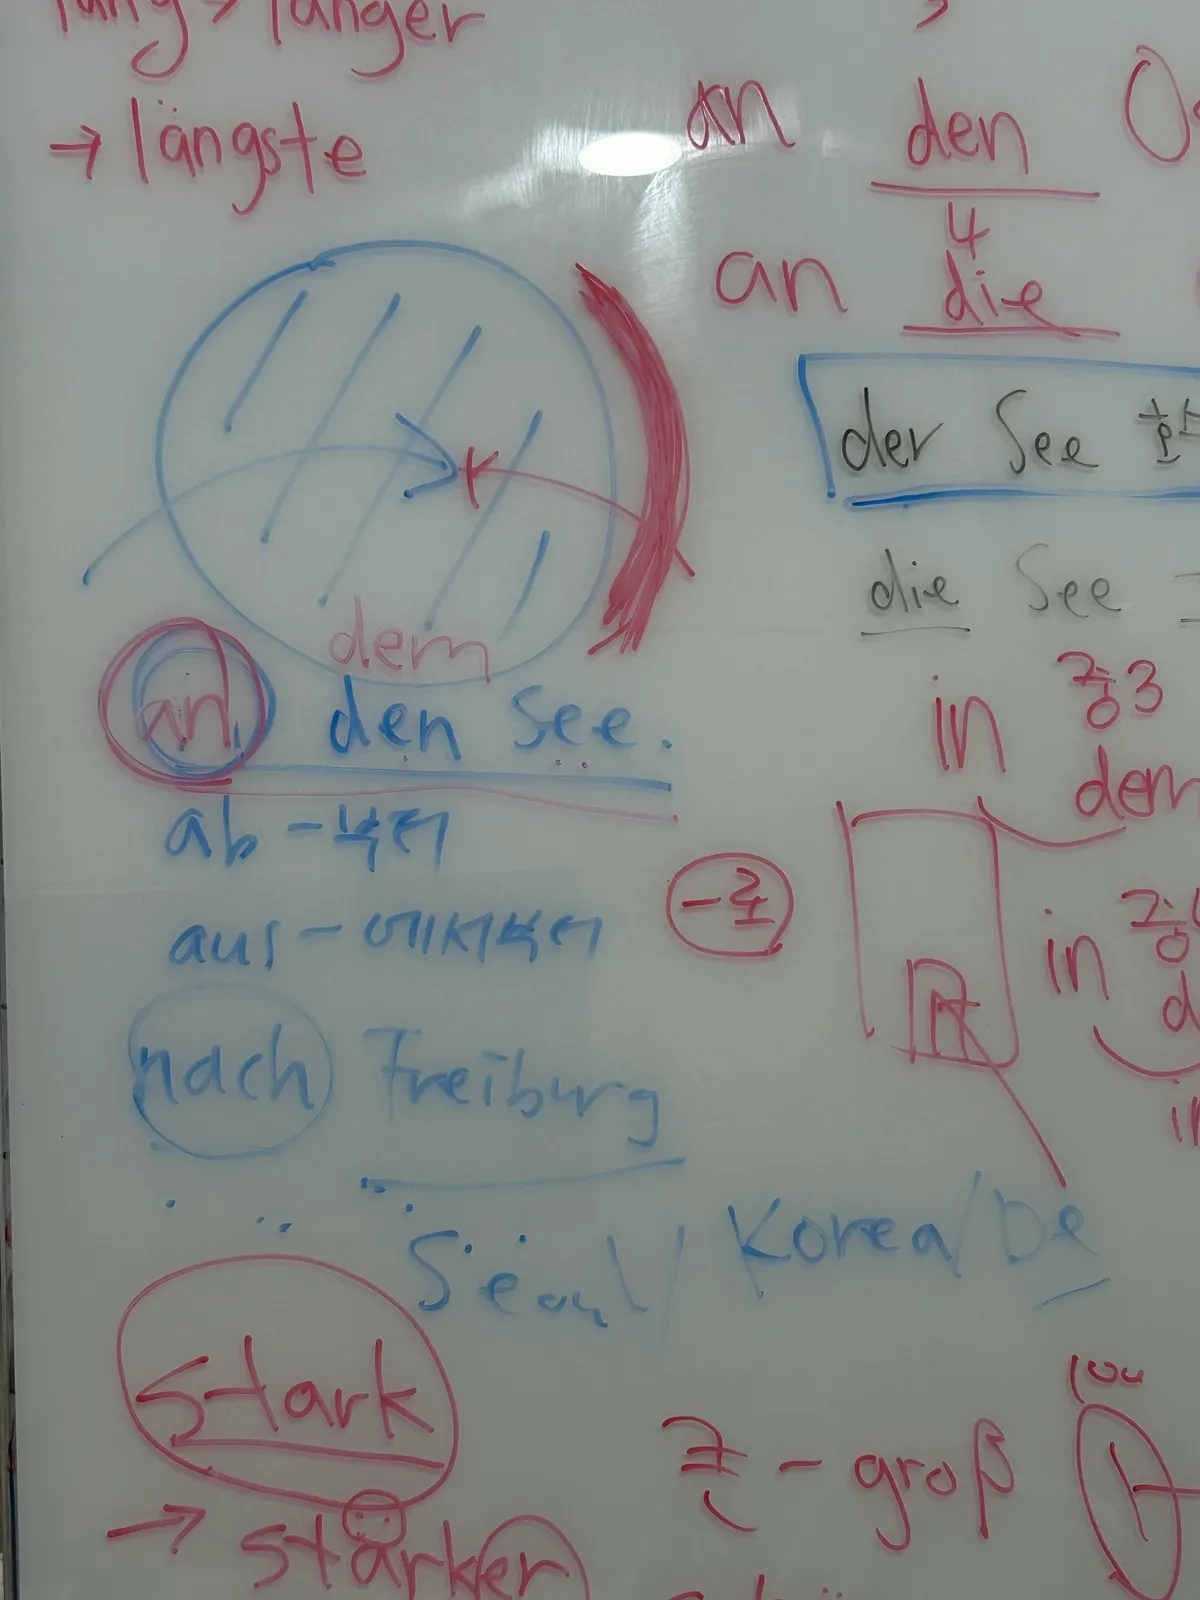 lang → länger
→ längste
an den
4
an die
der See 호수
die See
dem
an den See.
in 중3
dem
ab - 부터
aus - 에서부터
-로
in 중
nach Freiburg
Seoul / Korea / De
stark
→ stärker
- groß
100